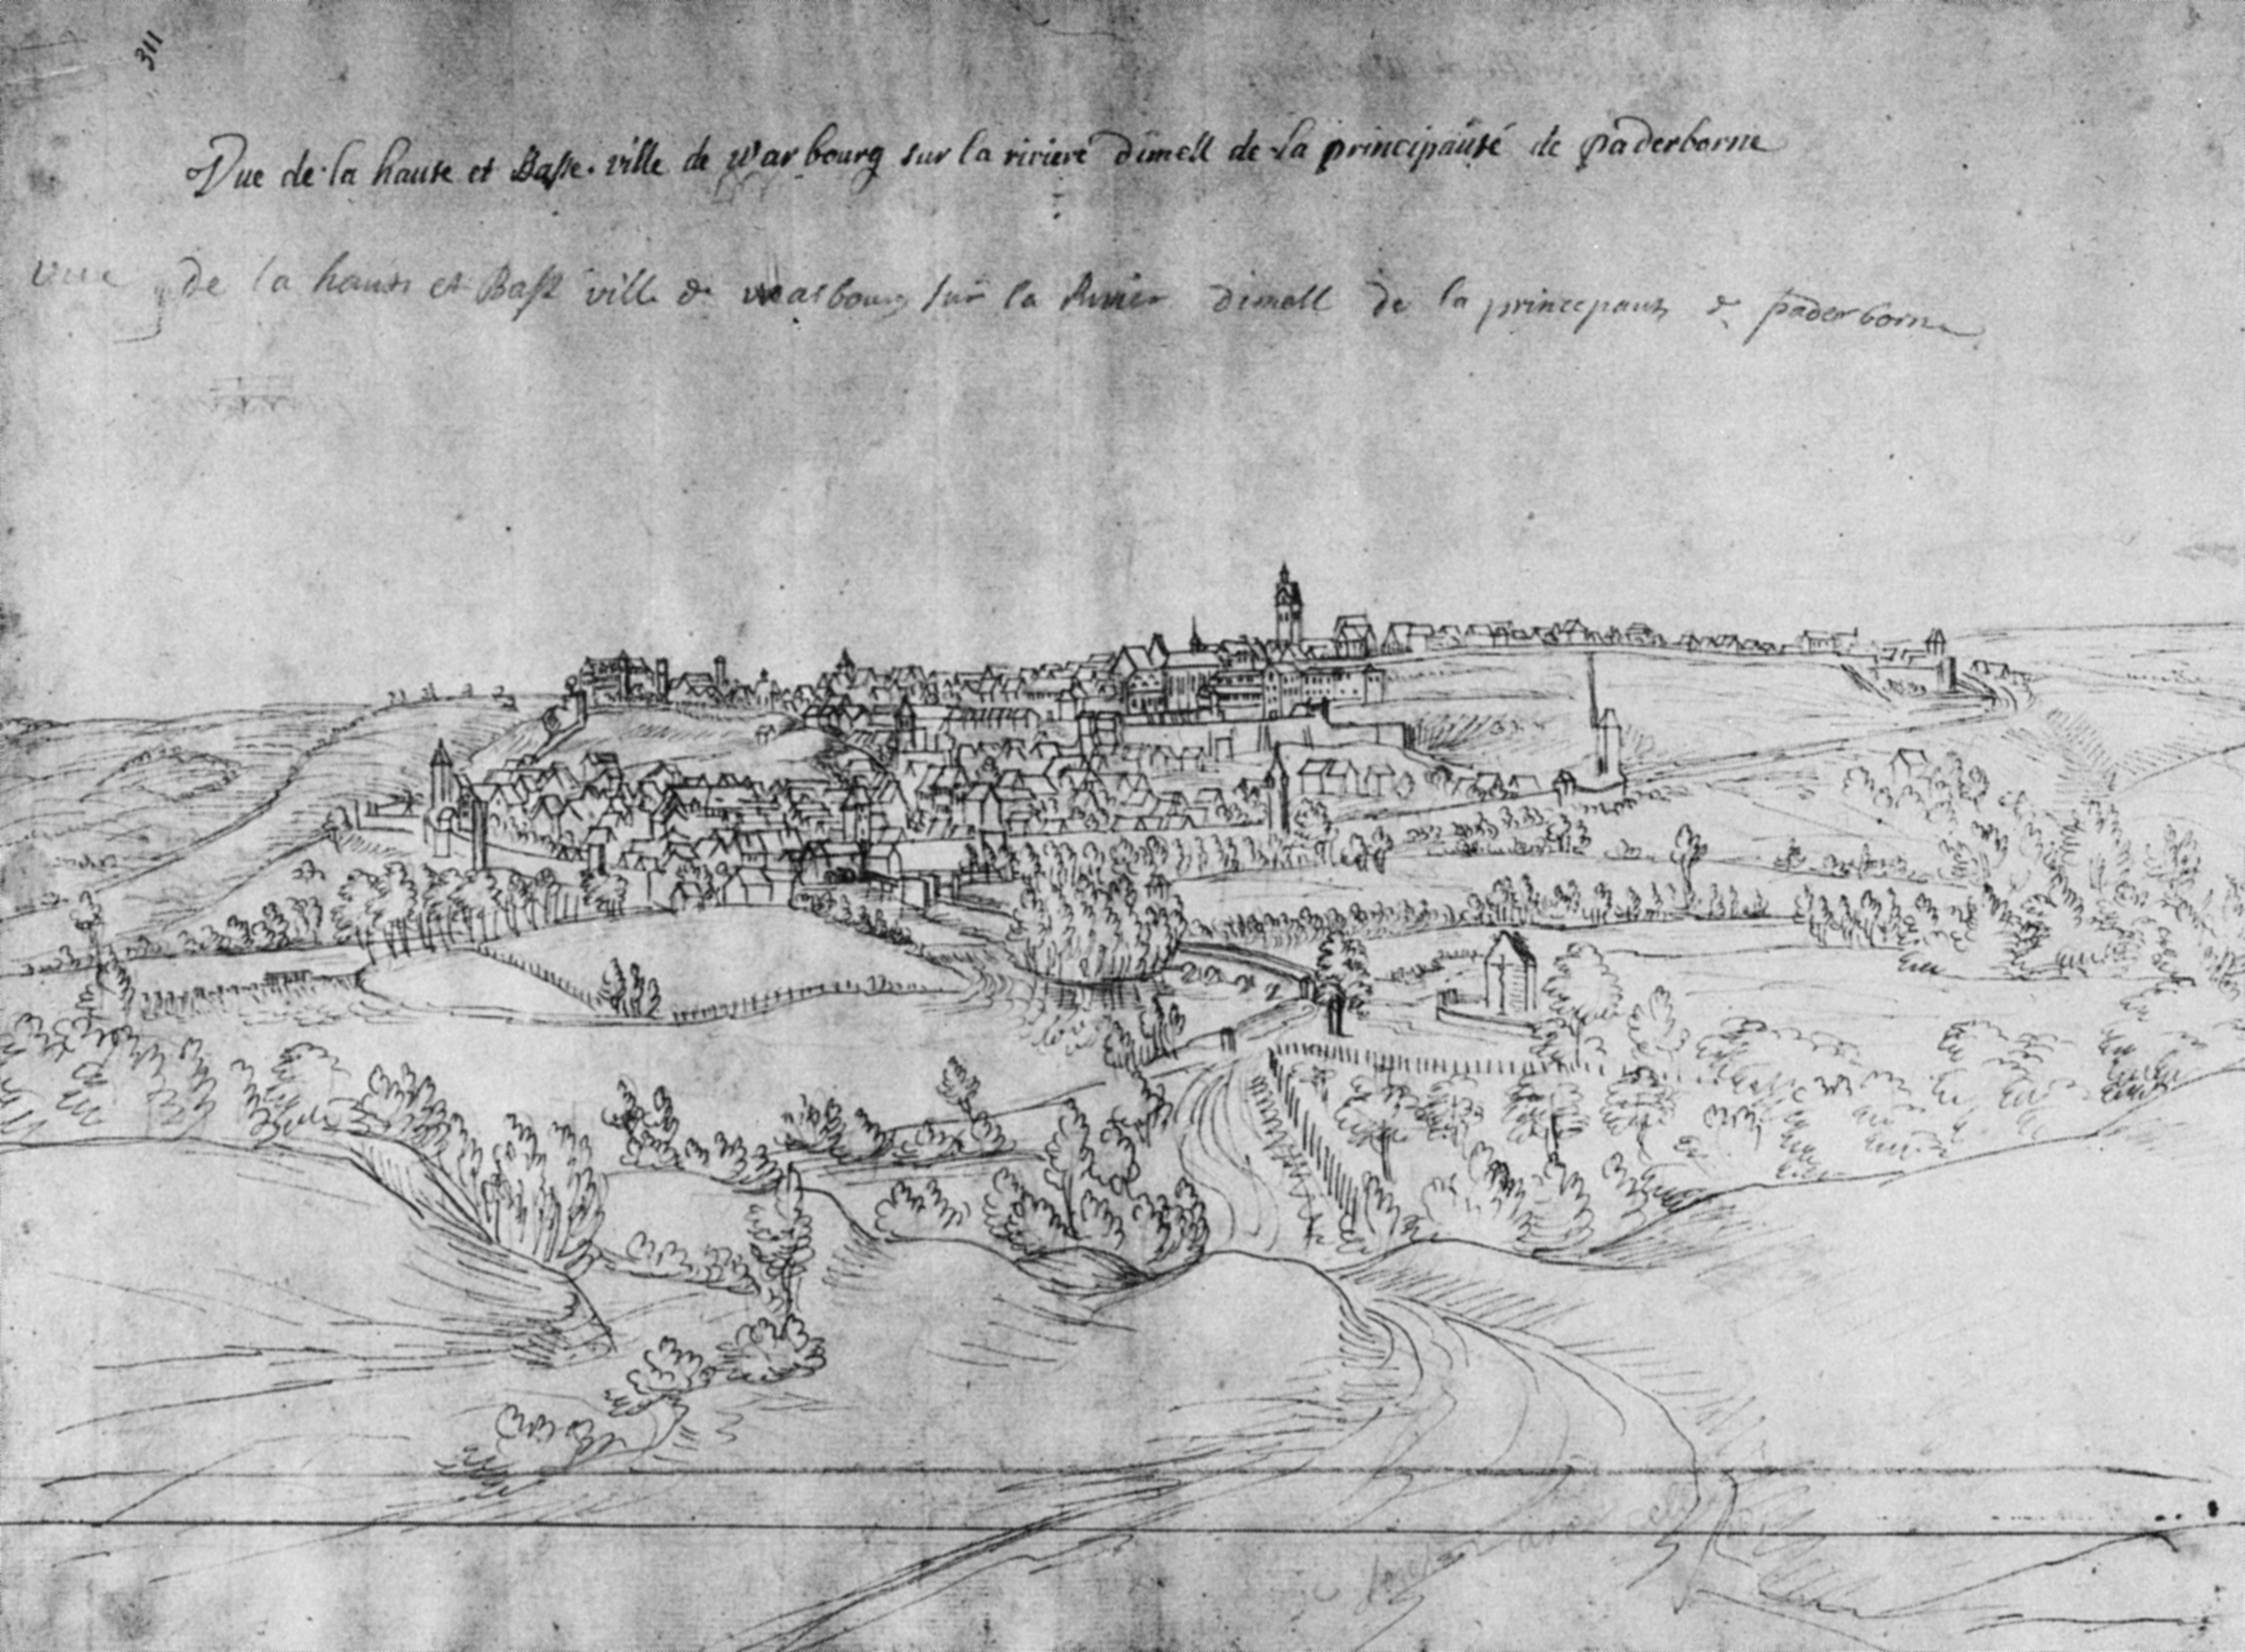 311
Vue de la haute et Basse ville de warbourg sur la riviere dimell de la principauté de paderborne
vue de la haute et Basse ville de warbourg sur la Rivier dimell de la principaute de paderborne